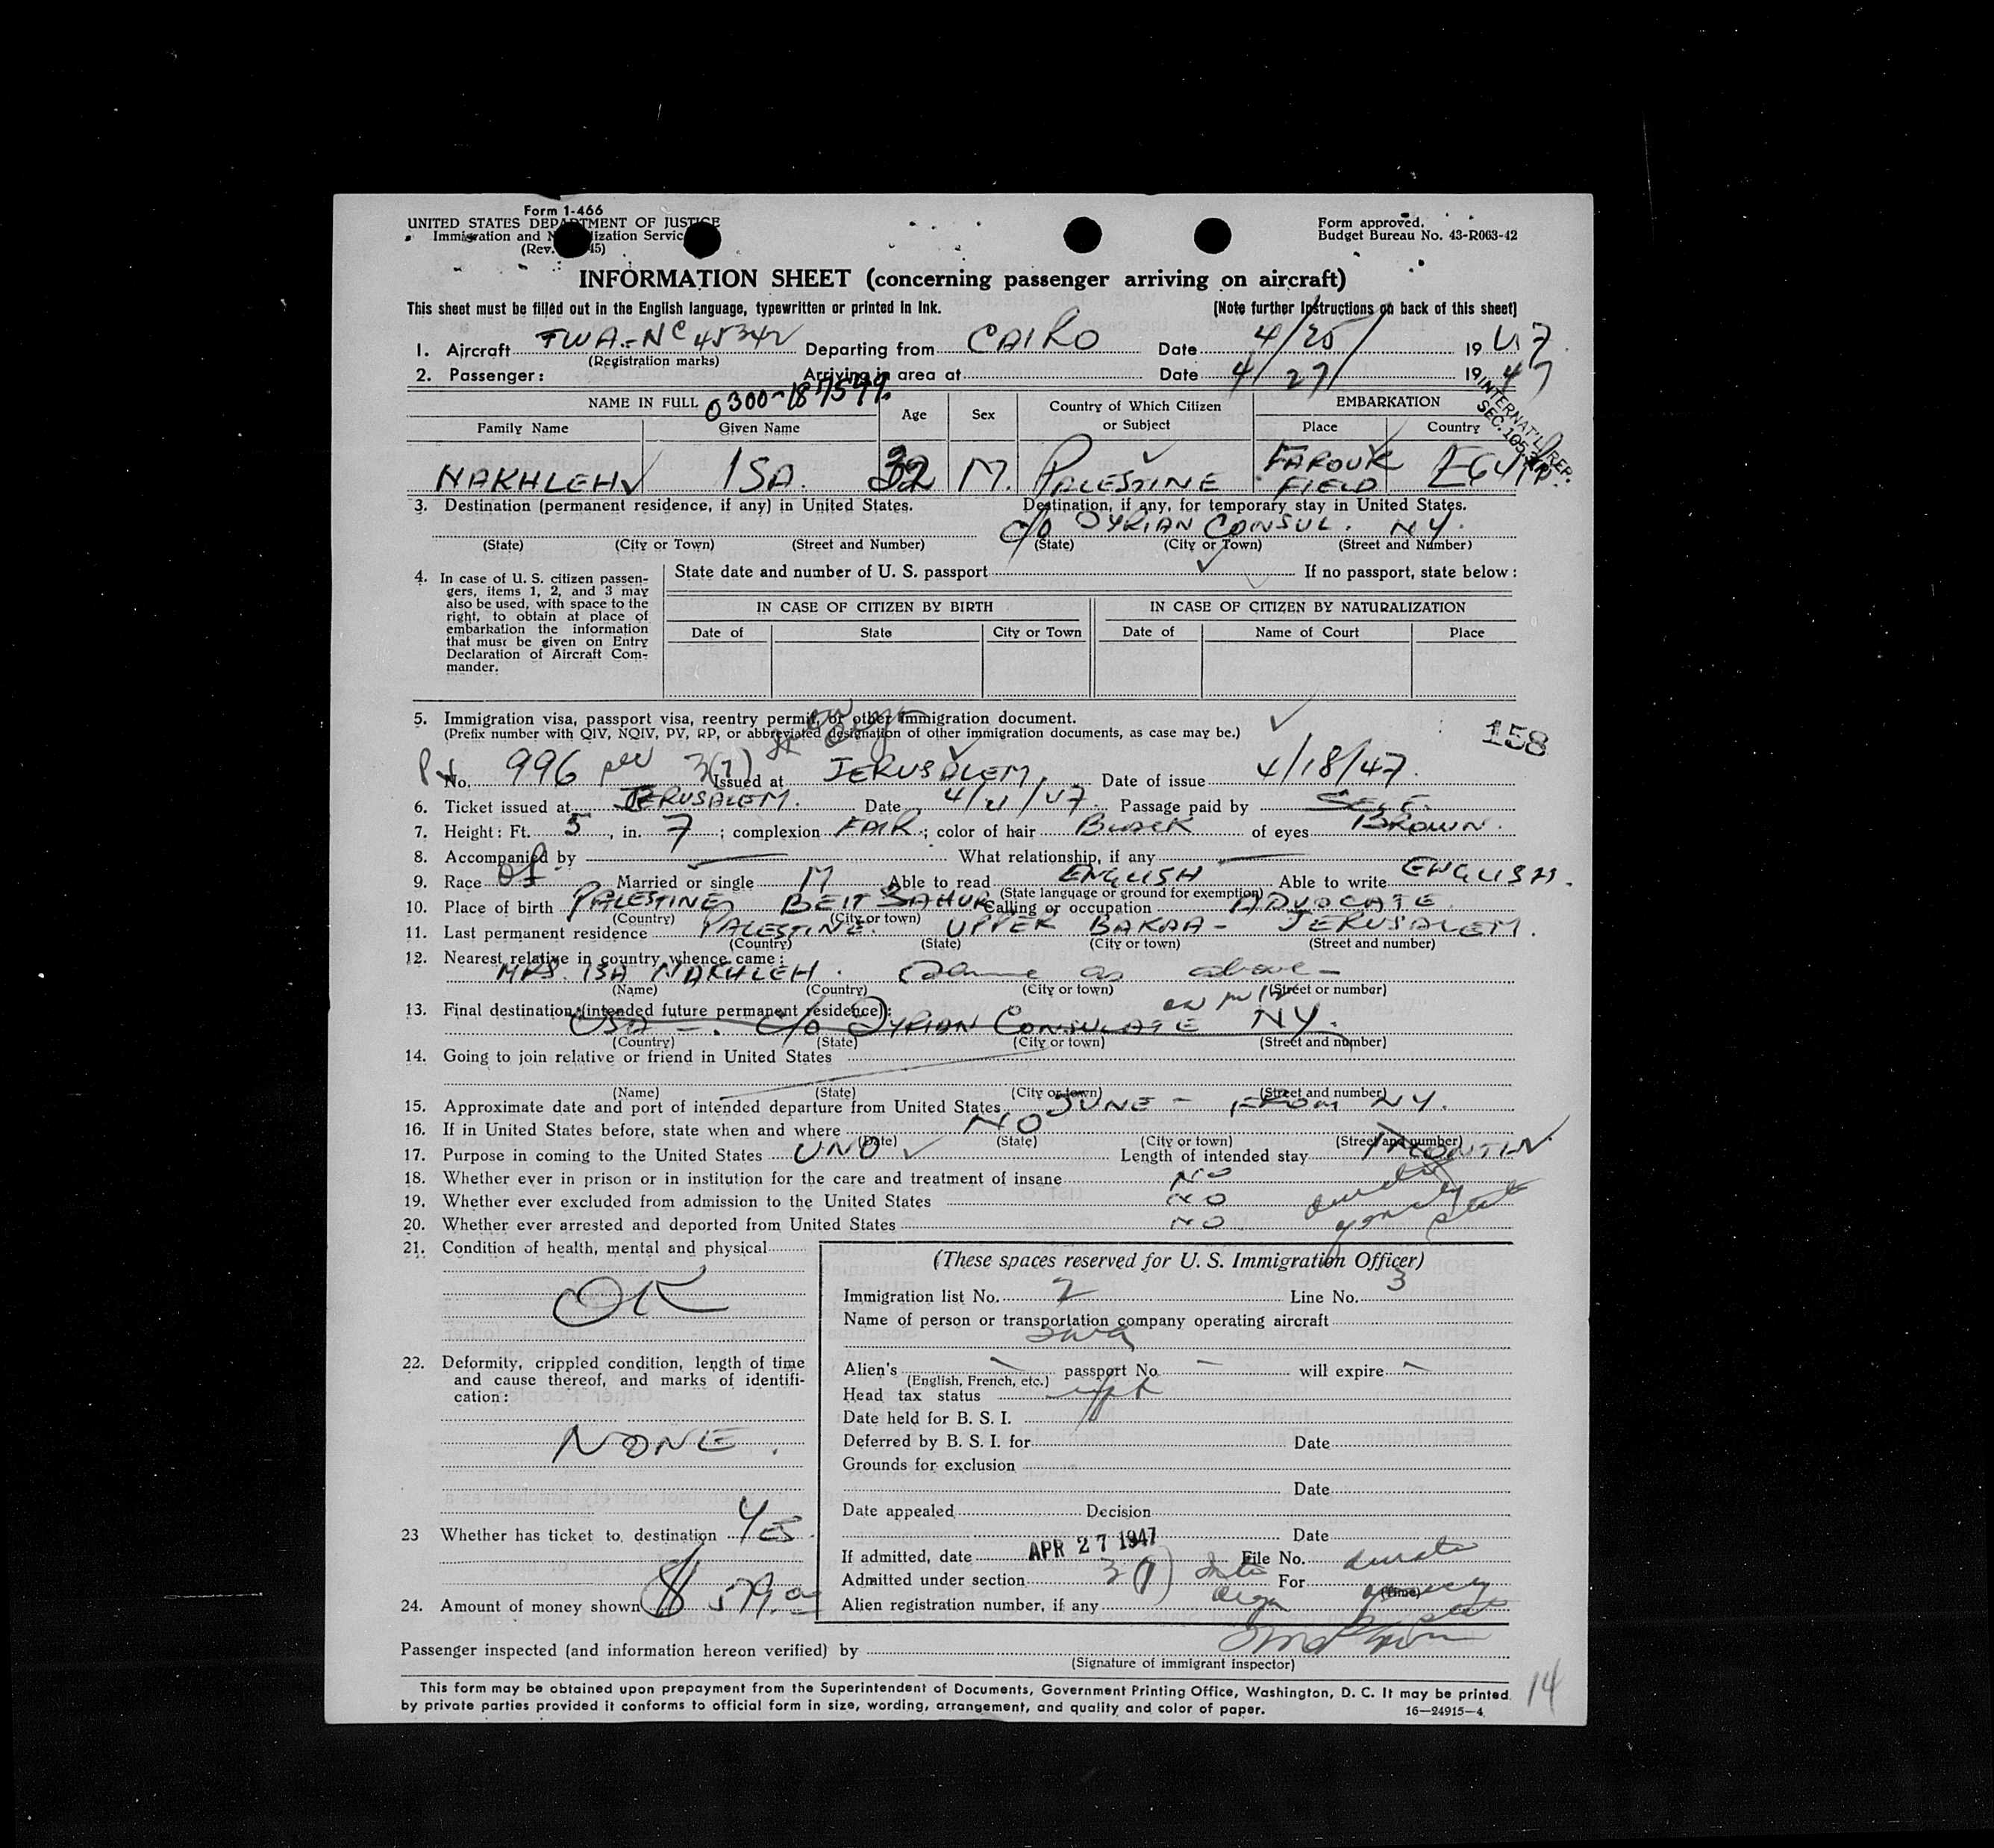 Form I-466
UNITED STATES DEPARTMENT OF JUSTICE
Immigration and Naturalization Service
(Rev. 45)
Form approved.
Budget Bureau No. 43-R063-42
INFORMATION SHEET (concerning passenger arriving on aircraft)
This sheet must be filled out in the English language, typewritten or printed in ink.
(Note further instructions on back of this sheet)
1. Aircraft TWA-NC 45342 Departing from CAIRO Date 4/25/ 1947
(Registration marks)
2. Passenger: Arriving in area at Date 4/27/ 1947
0300-187599
INTERNAT'L REP.
NAME IN FULL Age Sex Country of Which Citizen or Subject EMBARKATION
Family Name Given Name Place Country
NAKHLEH ISA. 32 M. PALESTINE FAROUK FIELD EGYPT.
3. Destination (permanent residence, if any) in United States. Destination, if any, for temporary stay in United States.
c/o SYRIAN CONSUL. NY.
(State) (City or Town) (Street and Number) (State) (City or Town) (Street and Number)
4. In case of U. S. citizen passen-
gers, items 1, 2, and 3 may
also be used, with space to the
right, to obtain at place of
embarkation the information
that must be given on Entry
Declaration of Aircraft Com-
mander.
State date and number of U. S. passport If no passport, state below:
IN CASE OF CITIZEN BY BIRTH IN CASE OF CITIZEN BY NATURALIZATION
Date of State City or Town Date of Name of Court Place
5. Immigration visa, passport visa, reentry permit, or other immigration document.
(Prefix number with QIV, NQIV, PV, RP, or abbreviated designation of other immigration documents, as case may be.)
158
No. 996 3(7) Issued at JERUSALEM, Date of issue 4/18/47.
6. Ticket issued at JERUSALEM. Date 4/21/47. Passage paid by SELF.
7. Height: Ft. 5, in. 7; complexion FAIR; color of hair BLACK of eyes BROWN.
8. Accompanied by What relationship, if any
9. Race Married or single M Able to read ENGLISH Able to write ENGLISH.
(State language or ground for exemption)
10. Place of birth PALESTINE BEIT SAHUR Calling or occupation ADVOCATE.
(Country) (City or town)
11. Last permanent residence PALESTINE. UPPER BAKAA- JERUSALEM.
(Country) (State) (City or town) (Street and number)
12. Nearest relative in country whence came:
MRS. ISA NAKHLEH. Same as above-
(Name) (Country) (City or town) (Street or number)
13. Final destination (intended future permanent residence):
USA-. c/o SYRIAN CONSULATE NY.
(Country) (State) (City or town) (Street and number)
14. Going to join relative or friend in United States
(Name) (State) (City or town) (Street and number)
15. Approximate date and port of intended departure from United States JUNE - FROM NY.
16. If in United States before, state when and where NO
(Date) (State) (City or town) (Street and number)
17. Purpose in coming to the United States UNO Length of intended stay
18. Whether ever in prison or in institution for the care and treatment of insane NO
19. Whether ever excluded from admission to the United States NO
20. Whether ever arrested and deported from United States NO
21. Condition of health, mental and physical
OK
22. Deformity, crippled condition, length of time
and cause thereof, and marks of identifi-
cation:
NONE.
23 Whether has ticket to destination YES.
24. Amount of money shown
(These spaces reserved for U. S. Immigration Officer)
Immigration list No. 2 Line No. 3
Name of person or transportation company operating aircraft
Twa
Alien's passport No. will expire
(English, French, etc.)
Head tax status
Date held for B. S. I.
Deferred by B. S. I. for Date
Grounds for exclusion
Date
Date appealed Decision
Date
If admitted, date APR 27 1947 File No.
Admitted under section 3(7) For
(Time)
Alien registration number, if any
Passenger inspected (and information hereon verified) by
(Signature of immigrant inspector)
This form may be obtained upon prepayment from the Superintendent of Documents, Government Printing Office, Washington, D. C. It may be printed
by private parties provided it conforms to official form in size, wording, arrangement, and quality and color of paper.
16—24915-4
14